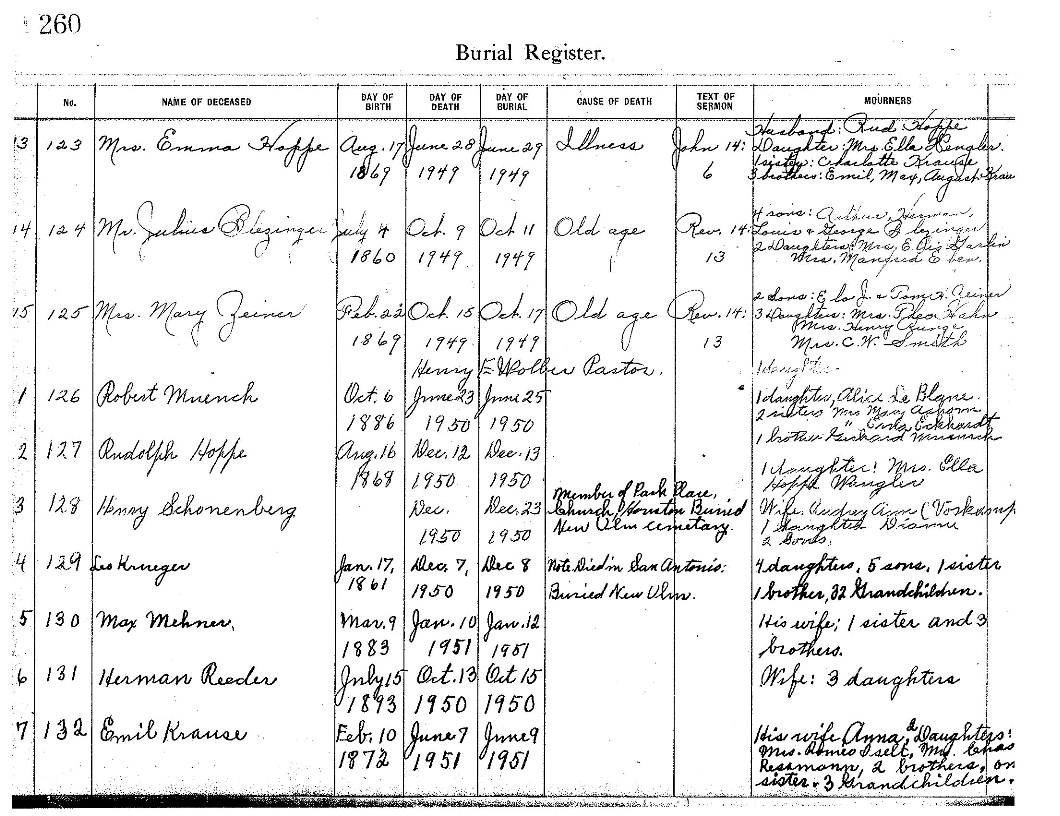 260
Burial Register.
No. NAME OF DECEASED DAY OF BIRTH DAY OF DEATH DAY OF BURIAL CAUSE OF DEATH TEXT OF SERMON MOURNERS
Husband: Rud Hoppe
13 123 Mrs. Emma Hoppe Aug. 17 June 28 June 29 Illness John 14: Daughter: Mrs Ella
1 sister: Charlotte Krause
1869 1949 1949 6 3 brothers: Emil, Max, August Krau
4 sons: Arthur, Herman,
14 124 Mr. Julius Blezinger July 4 Oct. 9 Oct 11 Old age Rev. 14: Louis & George Blezinger
2 Daughters: Mrs.
1860 1949 1949 13 Mrs. Manfred Eben.
2 Sons: & Tom H. Zeiner
15 125 Mrs. Mary Zeiner Feb. 22 Oct. 15 Oct. 17 Old age Rev. 14: 3 Daughters: Mrs. Theo Hahn
Mrs. Henry Runge
1869 1949 1949 13 Mrs. C.W. Smith
Henry E Wolber Pastor. 1 daught
1 126 Robert Muench Oct. 6 June 23 June 25 1 daughter, Alice Le Blanc
2 sisters Mrs Mary
1886 1950 1950 " Erna Eckhardt
1 brother Muench
2 127 Rudolph Hoppe Aug. 16 Dec. 12 Dec. 13
1 daughter: Mrs. Ella
1868 1950 1950 Hoppe Wengler
3 128 Henry Schonenberg Dec. Dec. 23 Member of Park Place, Wife. Audrey Ann (Voskamp
Church, Houston Buried 1 daughter
1950 1950 New Ulm cemetary. 2 Sons.
4 129 Leo Krueger Jan. 17, Dec. 7, Dec 8 Note Died in San Antonio: 4 daughters, 5 sons, 1 sister
1861 1950 1950 Buried New Ulm. 1 brother, 32 Grandchildren.
5 130 Max Mehner, Mar. 9 Jan. 10 Jan. 12 His wife; 1 sister and 3
1883 1951 1951 brothers.
6 131 Herman Reeder July 15 Oct. 13 Oct 15 Wife: 3 daughters
1893 1950 1950
7 132 Emil Krause Feb. 10 June 7 June 9 His wife Anna, 2 Daughters:
1872 1951 1951 Mrs. Romeo Iselt, Mrs. Chas
Ressmann, 2 brothers, on
sister. 3 Grandchildren.